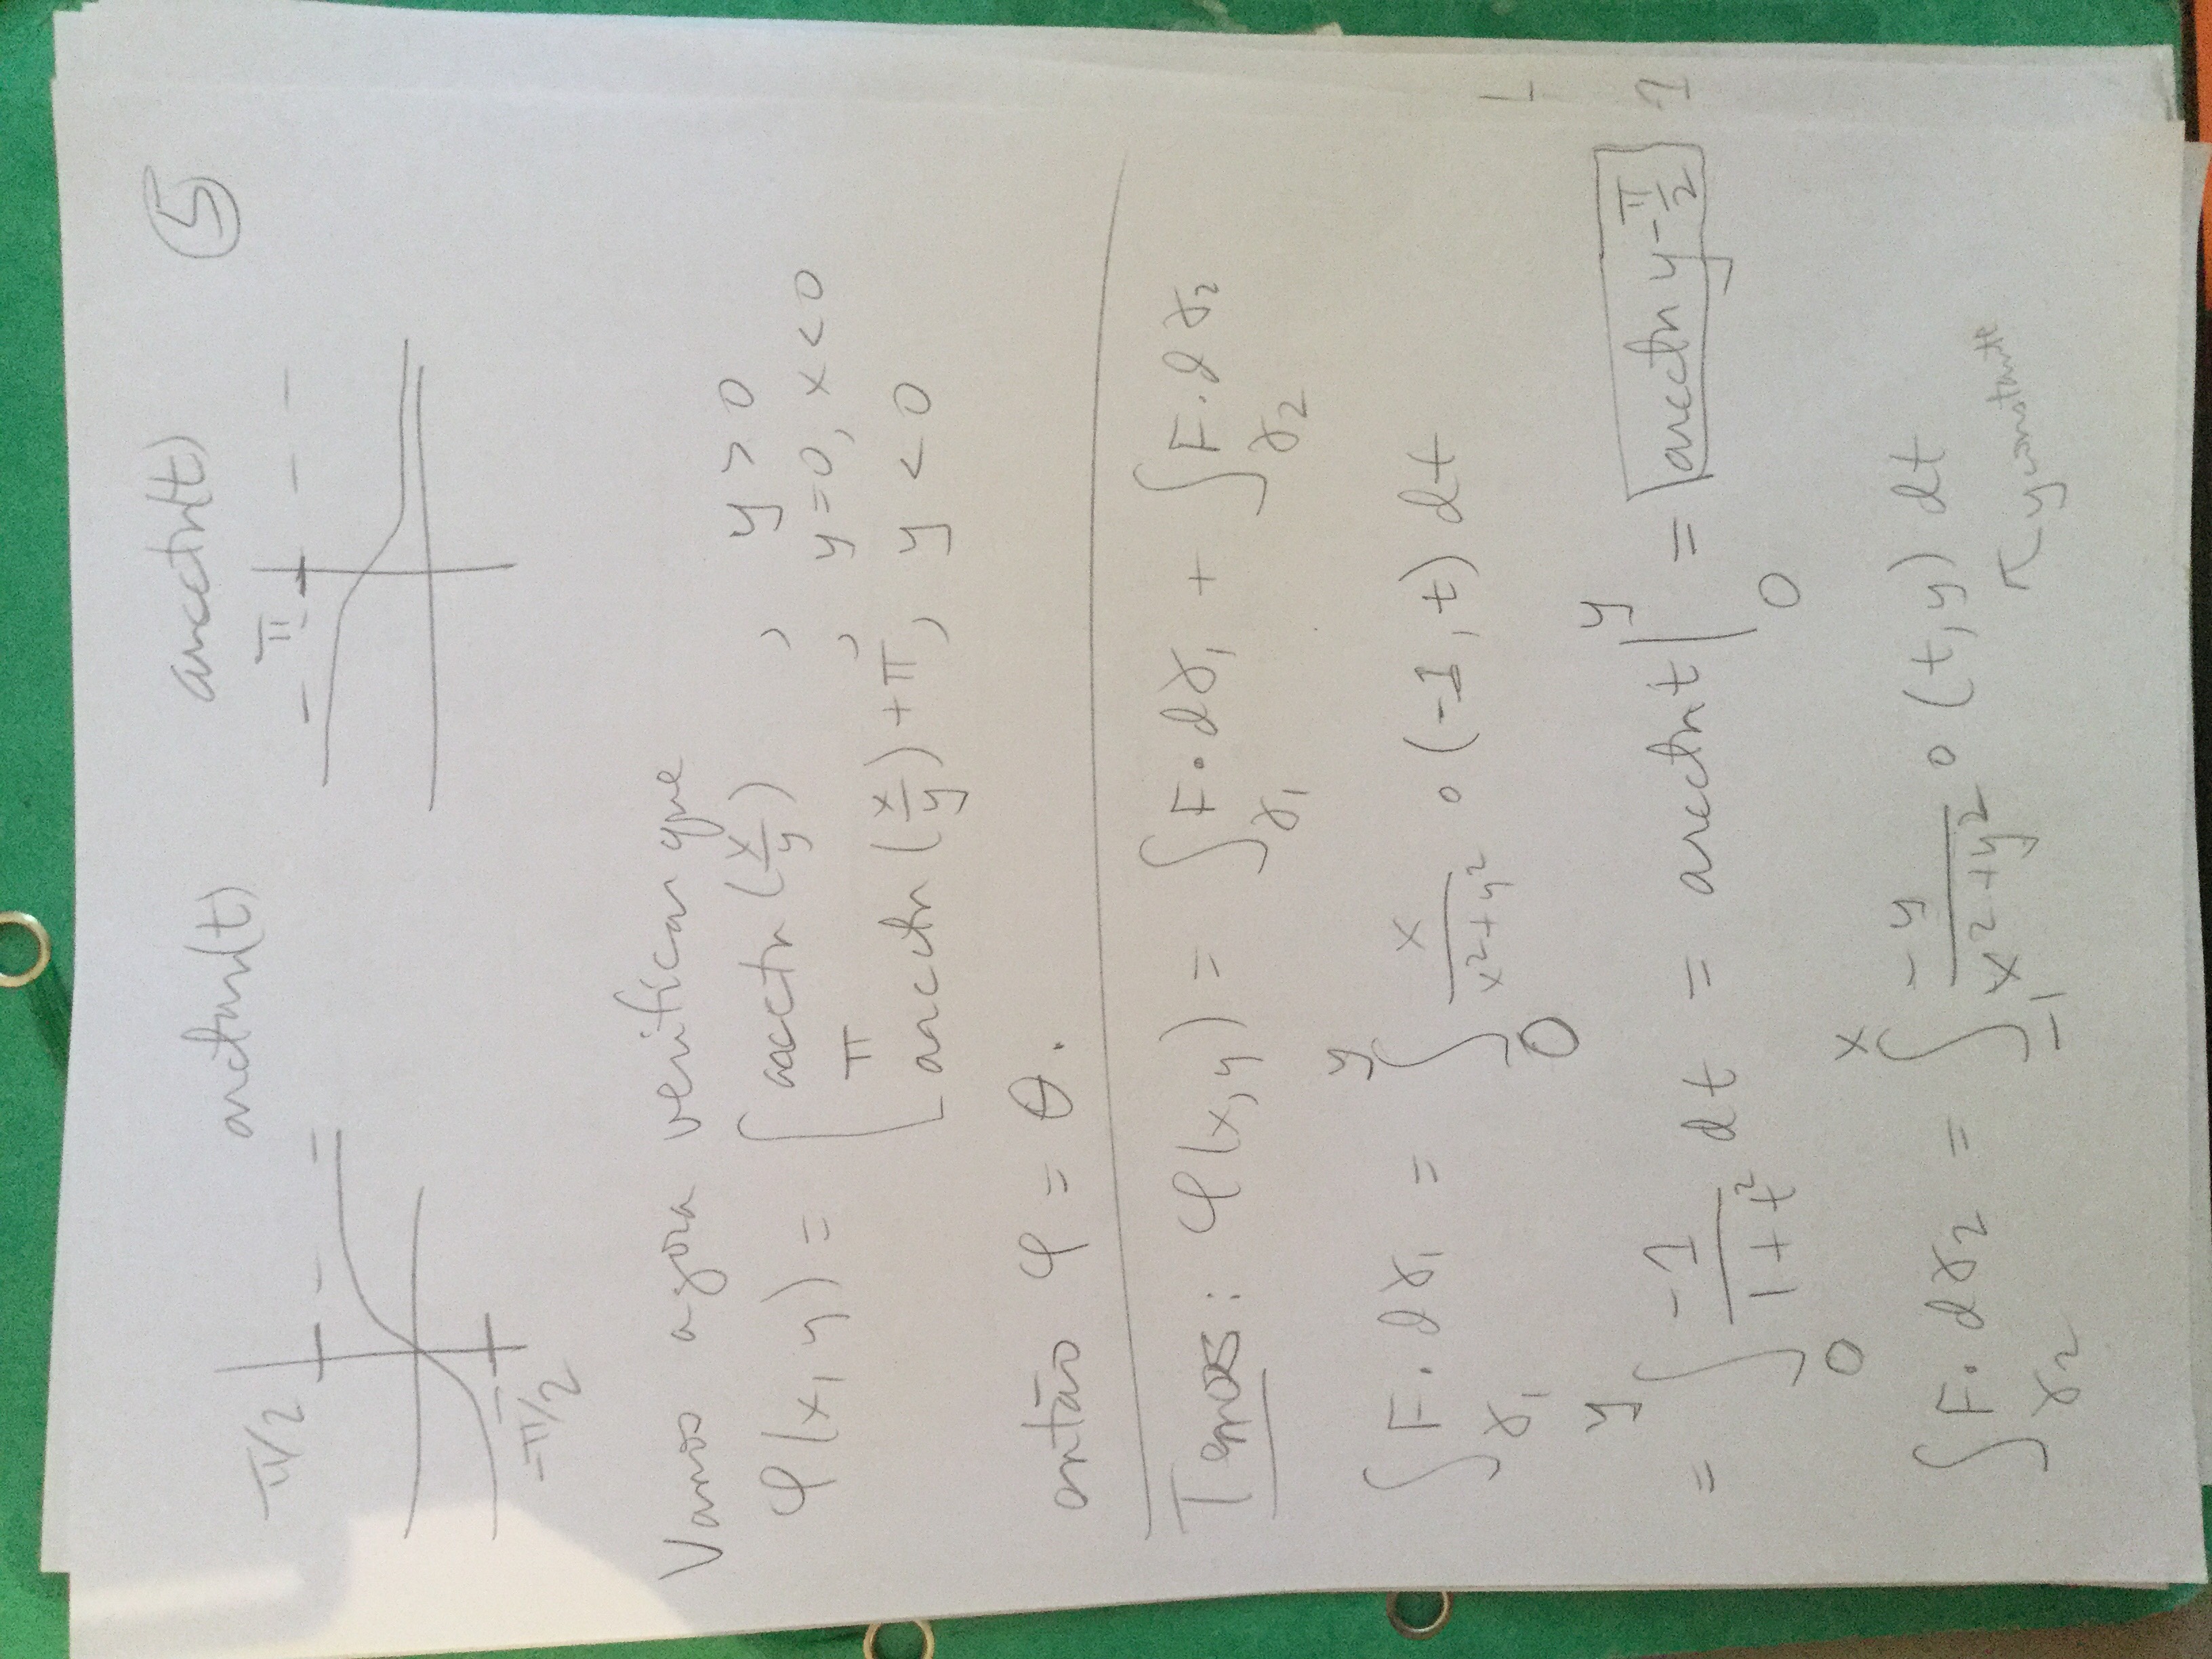 arctan(t) arcctn(t) ⑤
π/2 π
-π/2
Vamos agora verificar que
φ(x,y) = { arcctn(x/y) , y > 0
π , y=0, x<0
arcctn(x/y)+π, y<0
então φ = θ.
Temos: φ(x,y) = ∫_γ₁ F·dγ₁ + ∫_γ₂ F·dγ₂
∫_γ₁ F·dγ₁ = ∫_0^y x/(x²+y²) ∘ (-1,t) dt
= ∫_0^y -1/(1+t²) dt = arcctn t |_0^y = arcctn y - π/2
1
∫_γ₂ F·dγ₂ = ∫_-1^x -y/(x²+y²) ∘ (t,y) dt
↖ y constante